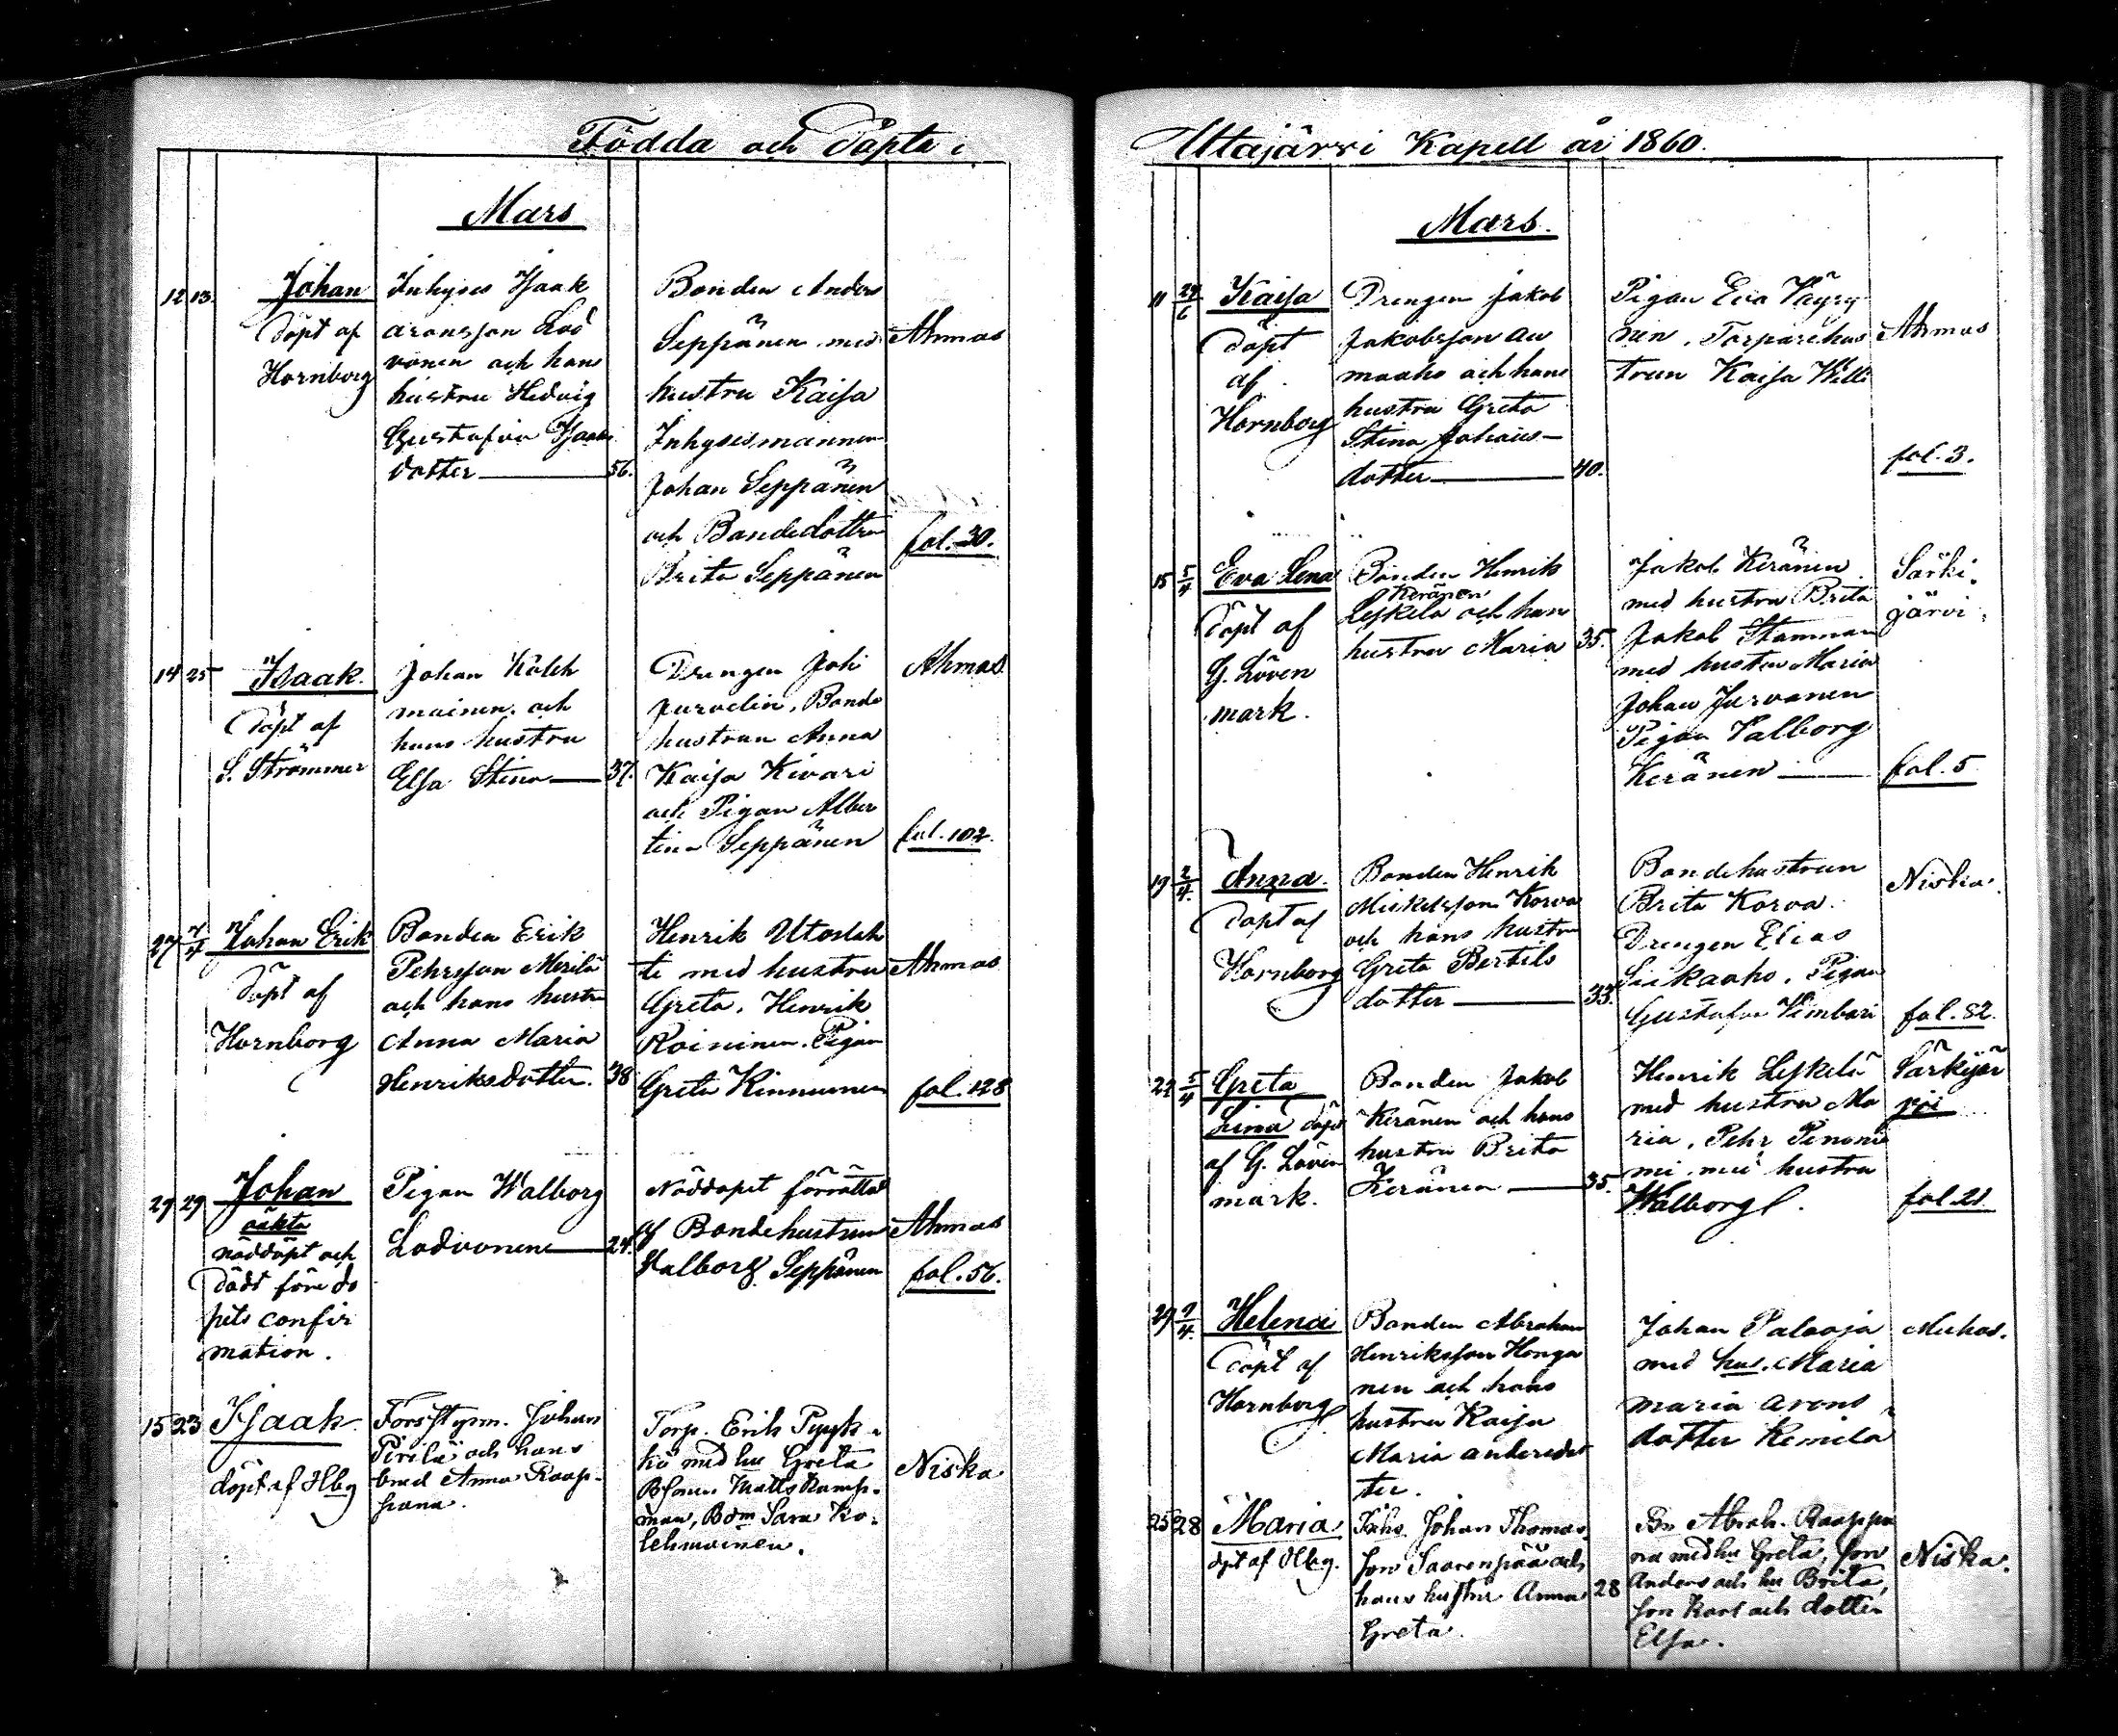 Födda och Döpta i
Mars
12 13. Johan
Döpt af
Hornborg
Inhyses Isaak
Aronsson Lod
vonen och hans
hustru Hedvig
Gustafva Isaaks
dotter 56.
Bonden Anders
Seppänen med
hustru Kaisa
Inhysesmannen
Johan Seppänen
och Bondedottren
Brita Seppänen
Ahmas
fol. 30.
14 25 Isaak.
Döpt af
S. Strömmer
Johan Koleh
mainen och
hans hustru
Elsa Stina 37.
Drengen Joh
Purvelin, Bonde
hustrun Anna
Kaisa Kivari
och Pigan Alber
tina Seppänen
Ahmas
fol. 102.
27 Johan Erik
Döpt af
Hornborg
Bonden Erik
Pehrsson Merilä
och hans hustru
Anna Maria
Henriksdotter. 38
Henrik Utoslah
ti med hustru
Greta. Henrik
Roininen. Pigan
Greta Kinnunen
Ahmas
fol. 128
29 29 Johan
oäkta
nöddöpt och
Död före do
pets confir
mation.
Pigan Walborg
Lodvonen 24.
Nöddopet förrättad
af Bondehustrun
Valborg Seppänen
Ahmas
fol. 56.
15 23 Isaak
döpt af Hbg
Forsstyrm. Johan
Pirilä och hans
hus Anna Raap-
pana.
Torp. Erik Pyyk-
kö med hu Greta
Bsonen Matts Kamp-
man, Bdm Sara Ko-
lehmainen.
Niska
Uttajärvi Kapell år 1860.
Mars.
11 Kaisa
Döpt
af
Hornborg
Drengen Jakob
Jakobsson Au
maaho och hans
hustru Greta
Stina Johans-
dotter 40.
Pigan Eva Väyry
nen, Torparehus
trun Kaisa Willi
Ahmas
fol. 3.
15 5/4 Eva Lena
Döpt af
G. Löven
mark.
Bonden Henrik
Keränen
Leskelä och hans
hustru Maria 35.
Jakob Keränen
med hustru Brita
Jakob Stamman
med hustru Maria
Johan Jurvanen
Pigan Valborg
Keränen
Särki
järvi
fol. 5
19 2/4. Anna.
Döpt af
Hornborg
Bonden Henrik
Mickelsson Korva
och hans hustru
Greta Bertils
dotter 33.
Bondehustrun
Brita Korva.
Drengen Elias
Siikaaho. Pigan
Gustafva Kimbari
Niska.
fol. 82.
22 5/4 Greta
Lima döpt
af G. Löven
mark.
Bonden Jakob
Keränen och hans
hustru Brita
Keränen 35.
Henrik Leskelä
med hustru Ma
ria, Pehr Penoni
mi med hustru
Walborg.
Särkijär
vi
fol. 21
29 9/4. Helena
Döpt af
Hornborg
Bonden Abraham
Henriksson Honga
nen och hans
hustru Kaisa
Maria Andersdot
ter.
Johan Palaoja
med hus. Maria
Maria Arons
dotter Kemilä
Muhos.
25 28 Maria
dpt af Hbg.
Inhs. Johan Thomas-
son Saarenpää och
hans hustru Anna 28
Greta.
Bn Abrah. Raappa
na med hu Greta, son
Anders och hu Brita,
son Karl och dotter
Elsa.
Niska.